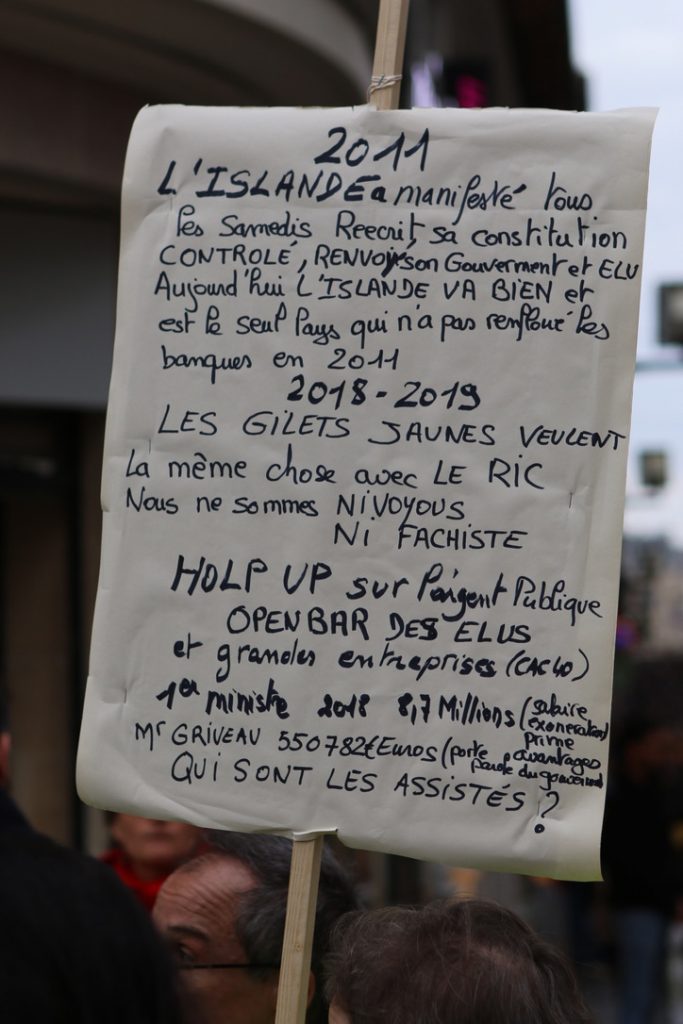 2011
L'ISLANDE a manifesté tous
les Samedis Reecrit sa constitution
CONTROLÉ, RENVOYÉ son Gouverment et ELU
Aujourd'hui L'ISLANDE VA BIEN et
est le seul Pays qui n'a pas renfloué les
banques en 2011
2018-2019
LES GILETS JAUNES VEULENT
La même chose avec LE RIC
Nous ne sommes NI VOYOUS
NI FACHISTE
HOLP UP sur l'argent Publique
OPEN BAR DES ELUS
et grandes entreprises (CAC40)
1er ministre 2018 8,7 Millions (salaire
exoneration
Prime
Mr GRIVEAU 550782€ Euros (porte avantages
parole du gouvernement
QUI SONT LES ASSISTÉS ?